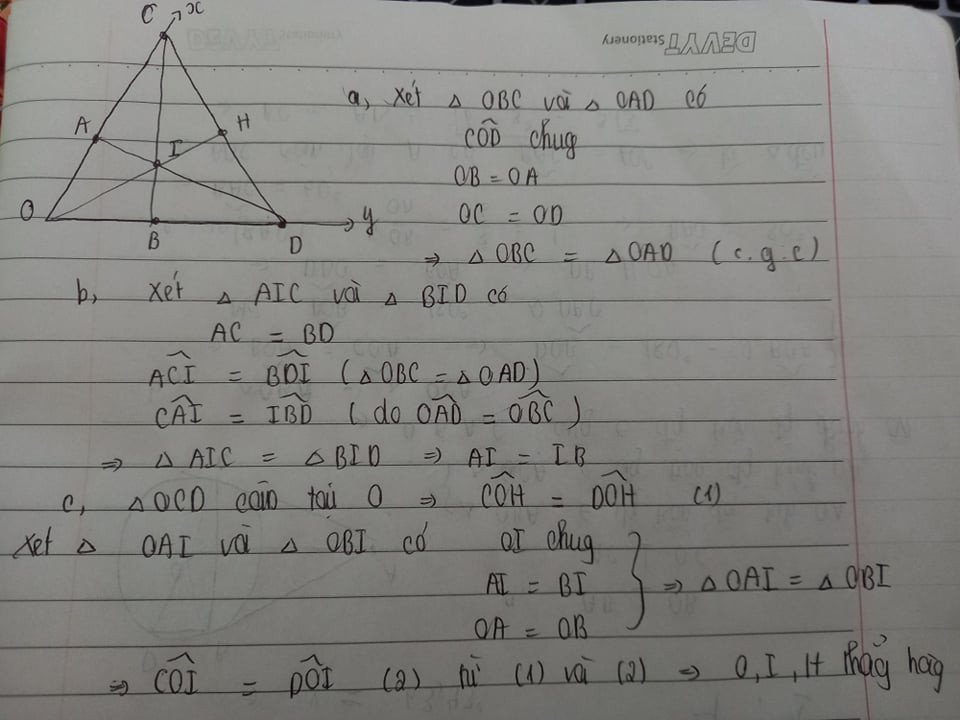 DEVYT Stationery
C x
A H
I
O B D y
a, Xét △ OBC và △ OAD có
CÔD chug
OB = OA
OC = OD
⇒ △ OBC = △ OAD (c.g.c)
b, Xét △ AIC và △ BID có
AC = BD
AĈI = BD̂I (△ OBC = △ OAD)
CÂI = IB̂D (do OÂD = OB̂C)
⇒ △ AIC = △ BID ⇒ AI = IB
c, △ OCD cân tại O ⇒ CÔH = DÔH (1)
Xét △ OAI và △ OBI có OI chug
AI = BI
OA = OB } ⇒ △ OAI = △ OBI
⇒ CÔI = DÔI (2) từ (1) và (2) ⇒ O, I, H thẳg hàg